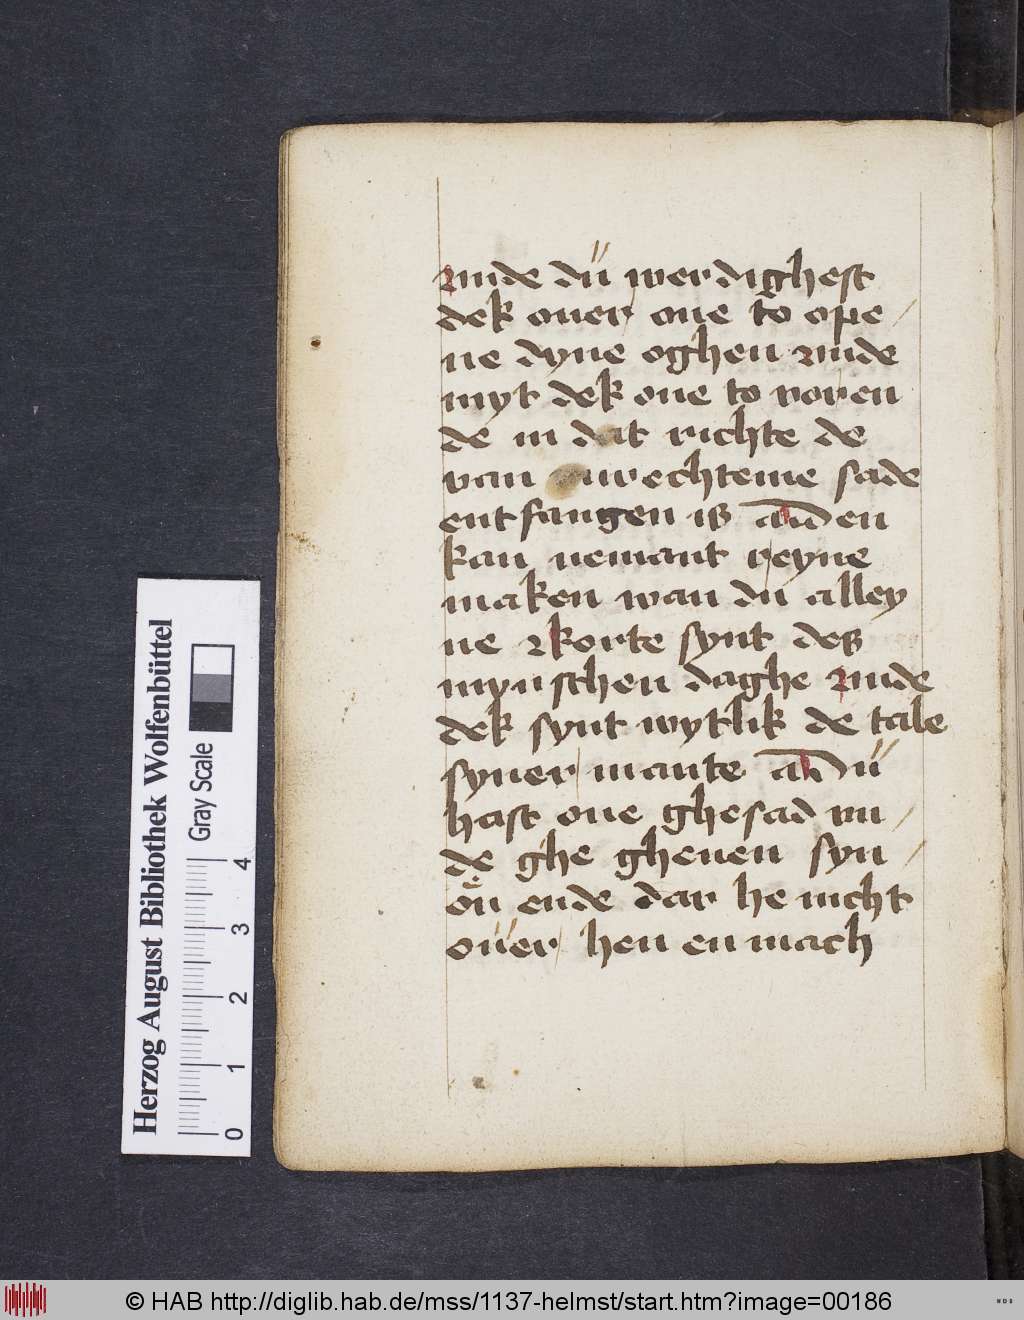 vnde du̎ werdighest
dek ouer one to ope
ne dyne oghen vnde
myt dek one to voren
de in dat richte de
van vnrechteme sade
entfangen is
kan nemant reyne
maken wan du alley
ne korte synt des
mynschen daghe vnde
dek synt wytlik de tale
syner mante du̎
hast one ghesad vn
de ghe gheuen syn
o̎n ende dar he nicht
ou̎er hen en mach
Herzog August Bibliothek Wolfenbüttel
Gray Scale
0 1 2 3 4
© HAB http://diglib.hab.de/mss/1137-helmst/start.htm?image=00186